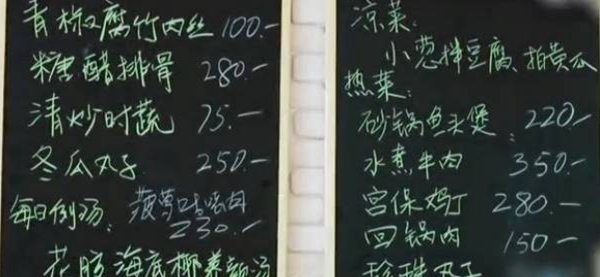 青椒腐竹肉丝 100.-
糖醋排骨 280.-
清炒时蔬 75.-
冬瓜丸子 250.-
每日例汤: 菠萝咕咾肉
230.-
花胶海底椰养颜汤
凉菜:
小葱拌豆腐、拍黄瓜
热菜:
砂锅鱼头煲: 220.-
水煮牛肉 350.-
宫保鸡丁 280.-
回锅肉 150-
珍珠丸子